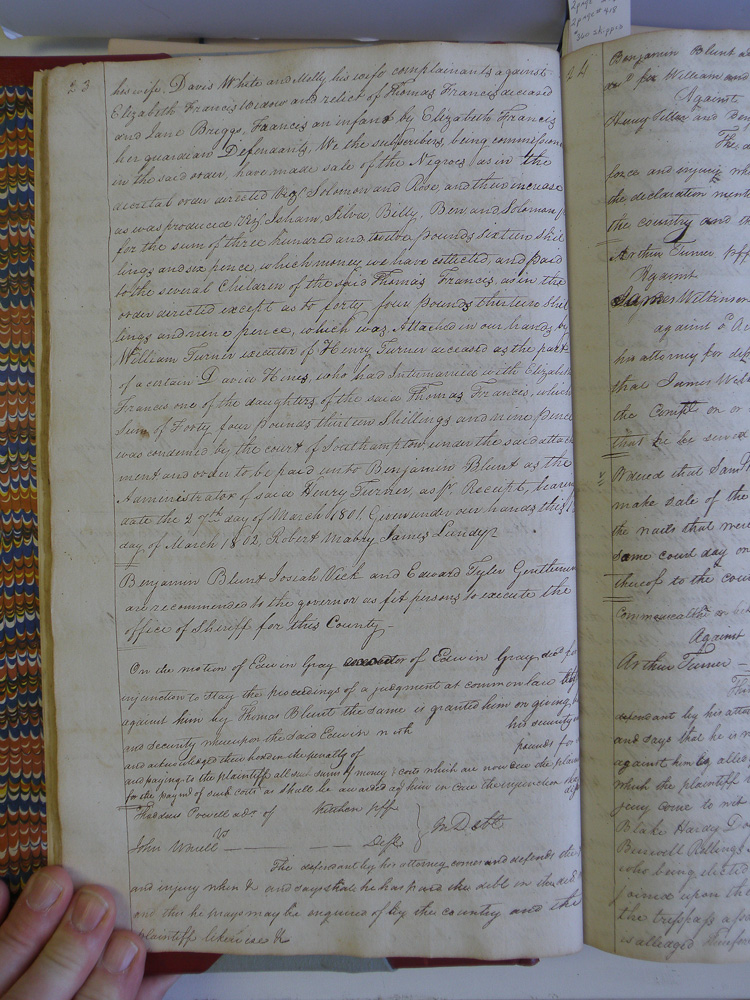 23
his wife, Davis White and Melly his wife complainants against
Elizabeth Francis widow and relict of Thomas Francis deceased
and Jane Breggs Francis an infant by Elizabeth Francis
her guardian Defendants, We the subscribers, being commission
in the said order, have made sale of the Negroes, as in the
decretal order directed Viz Solomon and Rose, and their increase
as was produced Viz Isham, Silva, Billy, Ben and Solomon,
for the sum of three hundred and twelve pounds sixteen Shil
lings and six pence, which money we have collected, and paid
to the several Children of the said Thomas Francis, as in the
order directed except as to forty four pounds thirteen Shil
lings and nine pence, which was Attached in our hands by
William Turner executor of Henry Turner deceased as the part
of a certain David Hines, who had Intermarried with Elizabeth
Francis one of the daughters of the said Thomas Francis, which
Sum of Forty four pounds thirteen Shillings and nine pence
was condemned by the court of Southampton under the said attach
ment and order to be paid unto Benjamin Blunt as the
Administrator of said Henry Turner, as pr. Receipt, bearing
date the 27th day of March 1801. Given under our hands this
day of March 1802, Robert Mabry James Lundy
Benjamin Blunt Josiah Vick and Edward Tyler Gentlemen
are recommended to the governor as fit persons to execute the
office of Sheriff for this County
On the motion of Edwin Gray of Edwin Gray, decd. for
injunction to stay the proceedings of a judgment at common law
against him by Thomas Blunt the same is granted him on giving
and security whereupon the said Edwin with his security
and acknowledged their bond in the penalty of pounds for
and paying to the plaintiff all such sums of money & costs which are now due the plain
for the paymt of such costs as shall be awarded agt him in case the injunction
Thaddeus Powell adr of Kitchen plff
vs
John Worrell Deft
In Debt
The defendant by his attorney comes and defends the
and injury when & and says that he has paid the debt in the decl
and this he prays may be enquired of by the country and the
plaintiff likewise &
24
Benjamin Blunt
William and
Against
Henry Sitter and
The
force and injury wh
the declaration ment
the country and th
Arthur Turner plff
Against
James Wilkinson
against
his attorney for def
that James Wil
the Complt on or
that he be served
Ordered that Sam
make sale of the
the that were
same court day on
thereof to the cou
Commonwealth
Against
Arthur Turner
defendant by his attor
and says that he is n
against him
which the plaintiff
jury come to wit
Blake Hardy
Burwell Rollings
who being elected
joined upon the
the trespass
is alledged